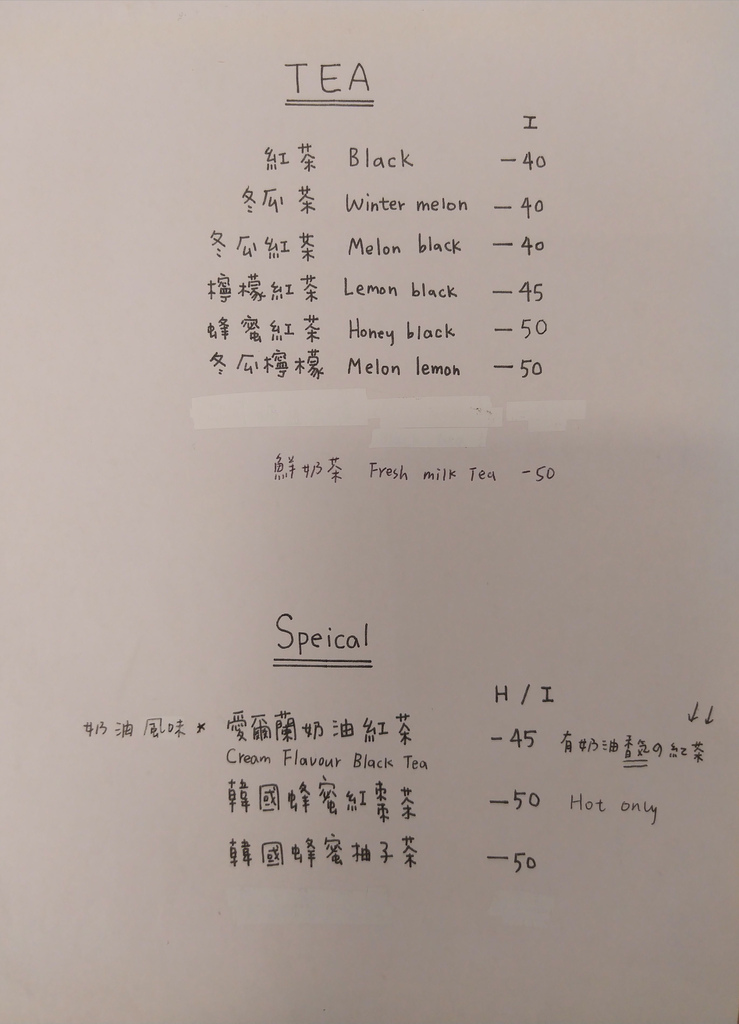 TEA
I
紅茶 Black - 40
冬瓜茶 Winter melon - 40
冬瓜紅茶 Melon black - 40
檸檬紅茶 Lemon black - 45
蜂蜜紅茶 Honey black - 50
冬瓜檸檬 Melon lemon - 50
鮮奶茶 Fresh milk Tea - 50
Speical
H / I
奶油風味 * 愛爾蘭奶油紅茶 - 45 有奶油香氣の紅茶 ↓↓
Cream Flavour Black Tea
韓國蜂蜜紅棗茶 - 50 Hot only
韓國蜂蜜柚子茶 - 50